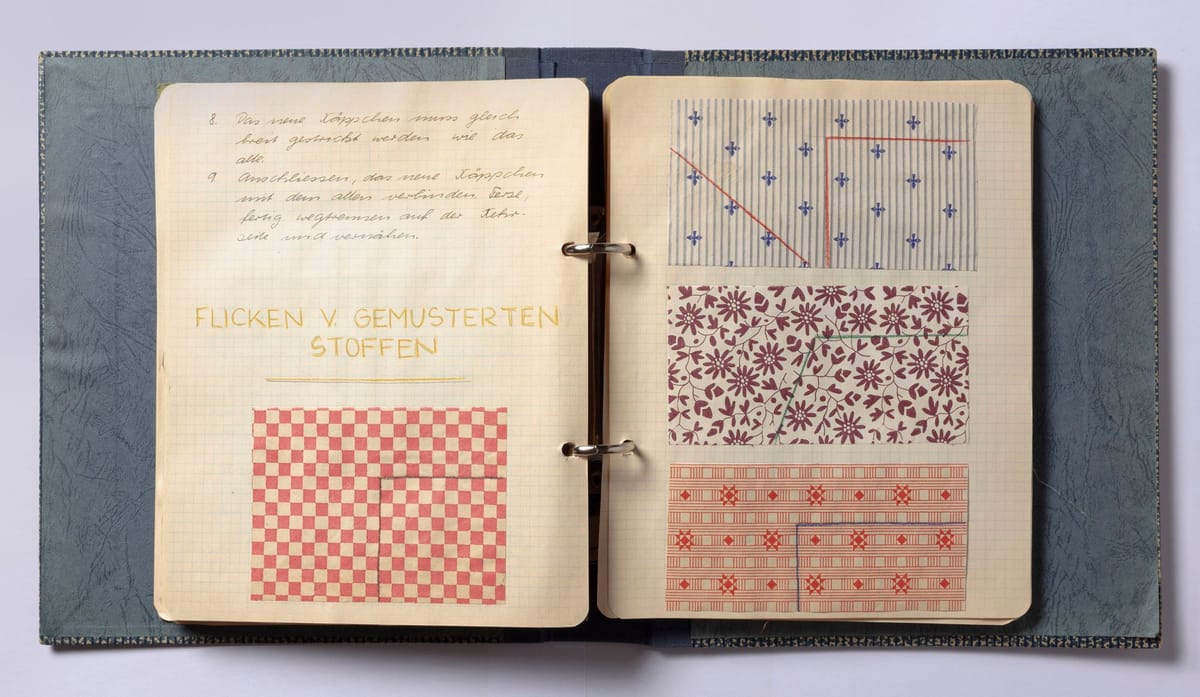 8. Das neue Käppchen muss gleich
breit gestrickt werden wie das
alte.
9. Anschliessen, das neue Käppchen
mit dem alten verbinden. Ferse,
fertig wegtrennen auf der Kehr-
seite und vernähen.
FLICKEN V. GEMUSTERTEN
STOFFEN